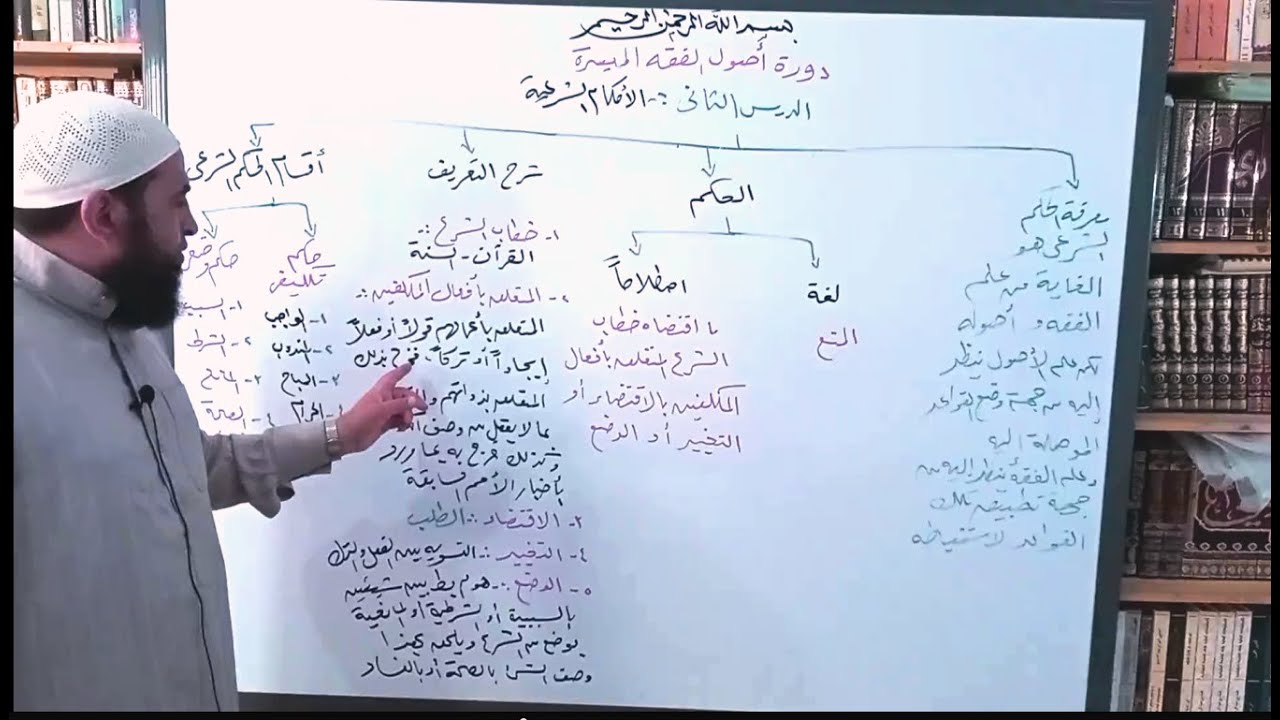 بسم الله الرحمن الرحيم
دورة أصول الفقه الميسرة
الدرس الثاني :- الأحكام الشرعية
معرفة الحكم
الشرعي هو
الغاية من علم
الفقه و أصوله
علم الأصول ينظر
إليه من جهة وضع القواعد
الموصلة اليه
وعلم الفقه ينظر إليه من
جهة تطبيق تلك
القواعد لاستنباطه
الحكم
لغة
المنع
اصطلاحاً
ما اقتضاه خطاب
الشرع المتعلق بأفعال
المكلفين بالاقتضاء أو
التخيير أو الوضع
شرح التعريف
١- خطاب الشرع :-
القرآن - السنة
٢- المتعلق بأفعال المكلفين :-
المتعلق بأعمالهم قولاً أو فعلاً
إيجاداً أو تركاً فخرج بذلك
المتعلق بذواتهم
بما لا يعقل من وصف
وكذلك خرج به بما ورد
بأخبار الأمم السابقة
٣- الاقتضاء :- الطلب
٤- التخيير :- التسوية بين الفعل والترك
٥- الوضع :- هو يربط بين شيئين
بالسببية أو الشرطية أو المانعية
بوضع من الشرع ويلحق بهذا
وصف الشرع بالصحة أو بالفساد
أقسام الحكم الشرعي
حكم
تكليفي
١- الواجب
٢- المندوب
٣- المباح
٤- الحرام
حكم وضعي
١- السبب
٢- الشرط
٣- المانع
٤- الصحة